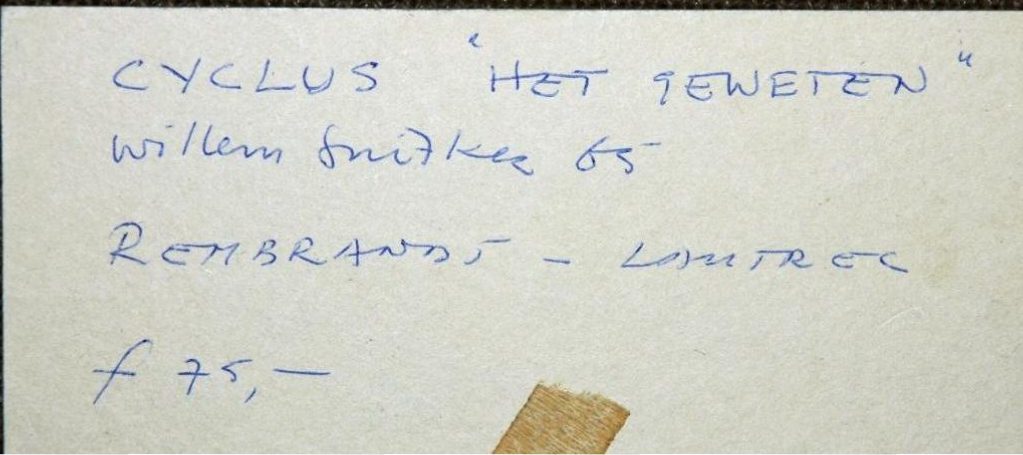 CYCLUS "HET GEWETEN"
Willem Snitker 65
REMBRANDT - LAUTREC
f 75,-